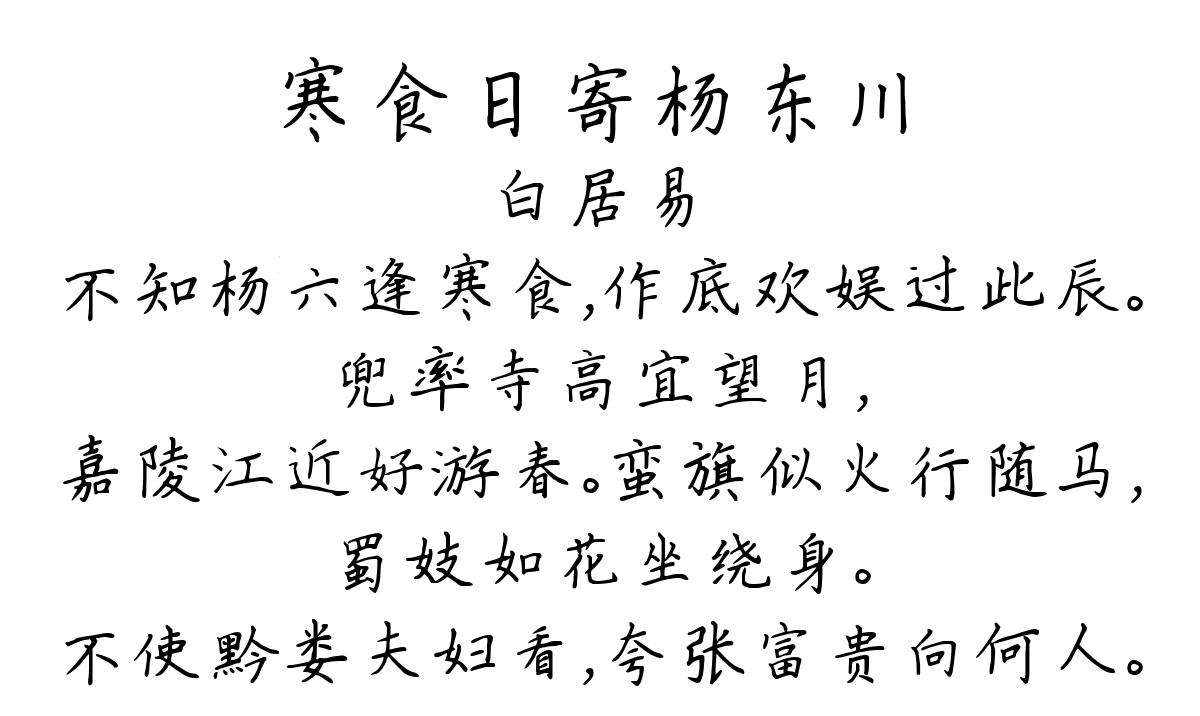 寒食日寄杨东川
白居易
不知杨六逢寒食,作底欢娱过此辰。
兜率寺高宜望月,
嘉陵江近好游春。蛮旗似火行随马,
蜀妓如花坐绕身。
不使黔娄夫妇看,夸张富贵向何人。